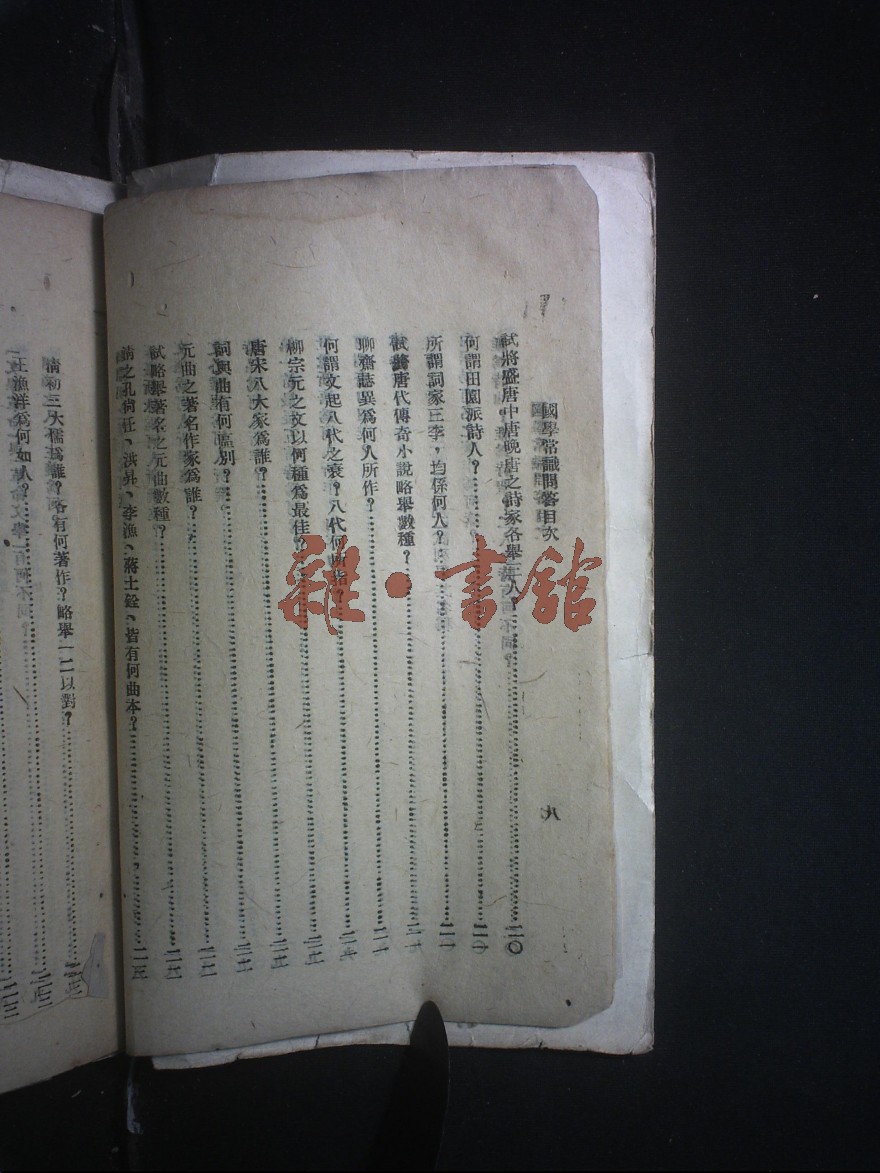 國學常識問答目次
八
試將盛唐中唐晚唐之詩家各舉二人?……二〇
何謂田園派詩人?……二一
所謂詞家三李,均係何人?……二一
試將唐代傳奇小說略舉數種?……二一
聊齋誌異爲何人所作?……二一
何謂文起八代之衰?八代何所指?……二一
柳宗元之文以何種爲最佳?……二二
唐宋八大家爲誰?……二二
詞與曲有何區別?……二二
元曲之著名作家爲誰?……二二
試略舉著名之元曲數種?……二二
清之孔尙任、洪昇、李漁、蔣士銓、皆有何曲本?……二三
清初三大儒爲誰?略有何著作?略舉一二以對?
王漁洋爲何如人?……二三
雜·書館